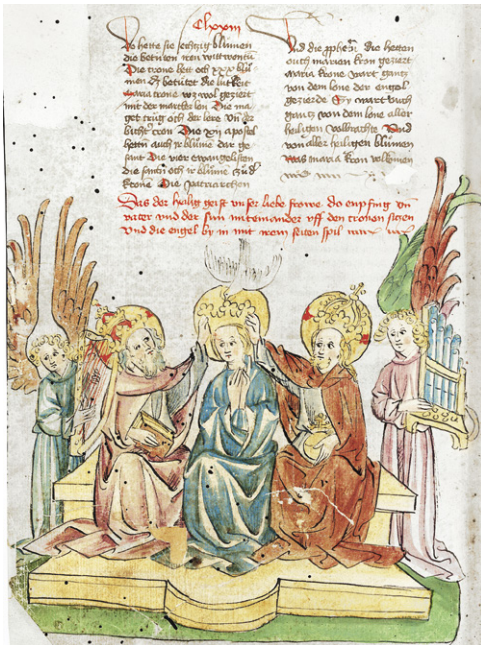 Clxxiii
So hette sie sechtzig blůmen
die betüten iren wittwentů
Die crone hett och xxx blů
men dz betütet die luterkeit
Maria crone wz wol geziert
mit der martrer lon Die ma
get trůg och der lere Vn der
bichter cron Die xij apostel
hettn auch ir blůme dar ge
sant Die vier ewangelisten
die santn och ir blůme zů d
krone Die patriarchen
Vnd die propheten die hetten
ouch marien kron geziert
Maria krone wart gantz
von dem lone der engel
gezierde Er wart ouch
gantz von dem lone aller
heiligen volbracht Vnd
von aller heiligen blůmen
was maria kron volkumen
Das der heilig geist vnser liebe frowe do enpfing vn
vater vnd der sun miteinander vff den tronen sitzen
Vnd die engel by in mit irem seiten spil